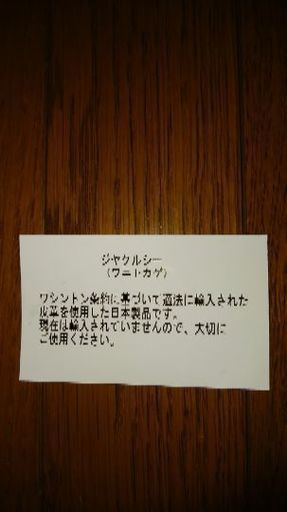 ジャケルシー
(ワニトカゲ)
ワシントン条約に基づいて適法に輸入された
皮革を使用した日本製品です。
現在は輸入されていませんので、大切に
ご使用ください。